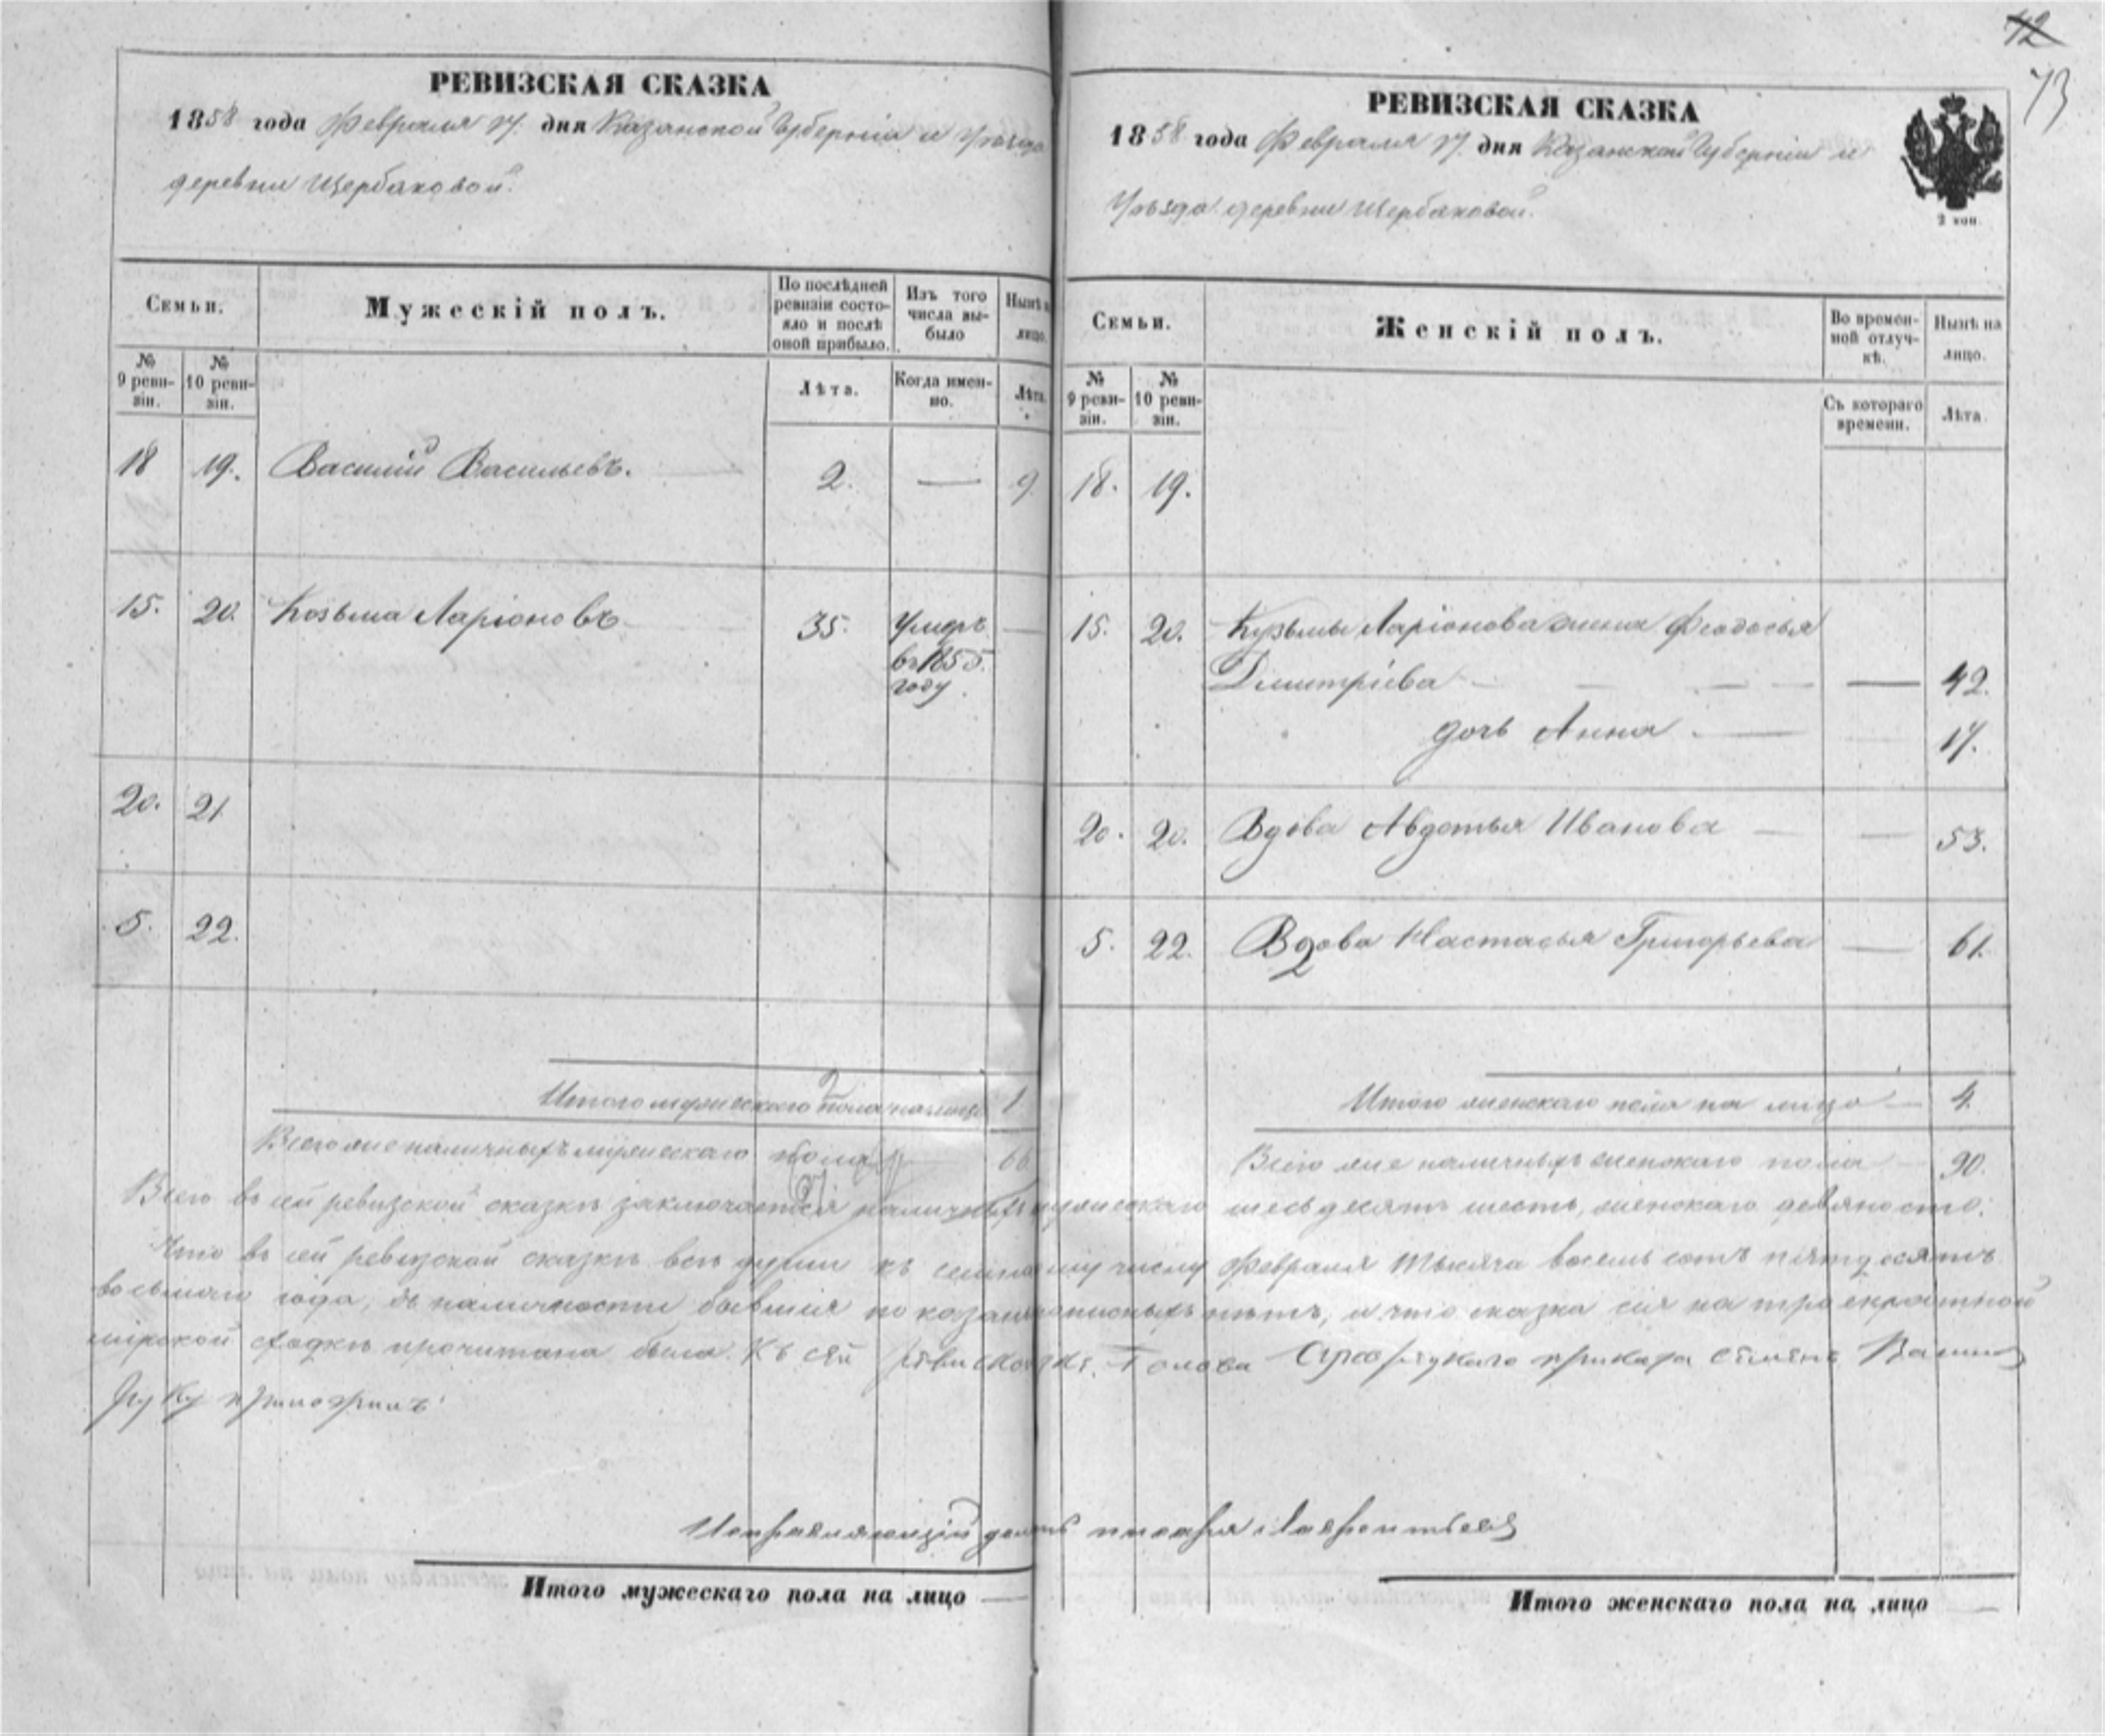 12
73
РЕВИЗСКАЯ СКАЗКА
1858 года Февраля 7. дня Казанской Губерніи и Уѣзда
деревни Щербаковой.
Семьи.
Мужескій полъ.
По послѣдней ревизіи состояло и послѣ оной прибыло.
Изъ того числа выбыло
Нынѣ на лицо.
№ 9 ревизіи.
№ 10 ревизіи.
Лѣта.
Когда именно.
Лѣта.
18 19. Василій Васильевъ. 2. — 9.
15. 20. Козьма Ларіоновъ 35. Умеръ —
въ 1855.
году.
20. 21
5. 22.
Итого мужескаго пола на лицо 1
Всего же наличныхъ мужескаго пола 66
РЕВИЗСКАЯ СКАЗКА
1858 года Февраля 7. дня Казанской Губерніи и
Уѣзда деревни Щербаковой.
2 коп.
Семьи.
Женскій полъ.
Во временной отлучкѣ.
Нынѣ на лицо.
№ 9 ревизіи.
№ 10 ревизіи.
Съ котораго времени.
Лѣта.
18. 19.
15. 20. Кузьмы Ларіонова жена Феодосья
Димитріева — 42.
дочь Анна — 17.
20. 20. Вдова Авдотья Иванова — 53.
5. 22. Вдова Настасья Григорьева — 61.
Итого женскаго пола на лицо — 4.
Всего же наличныхъ женскаго пола — 90.
Всего въ сей ревизской сказкѣ заключается наличныхъ мужескаго шесьдесятъ шесть, женскаго девяносто.
Что въ сей ревизской сказкѣ всѣ души къ седьмому числу Февраля тысяча восемь сотъ пятдесятъ
восьмаго года, въ наличности бывшія показаны прописныхъ нѣтъ, и что сказка сія на троекратной
мірской сходкѣ прочитана была. Къ сей Голова приказа Семенъ
руку приложилъ
Исправляющій писаря Лаврентьевъ
Итого мужескаго пола на лицо —
Итого женскаго пола на лицо —